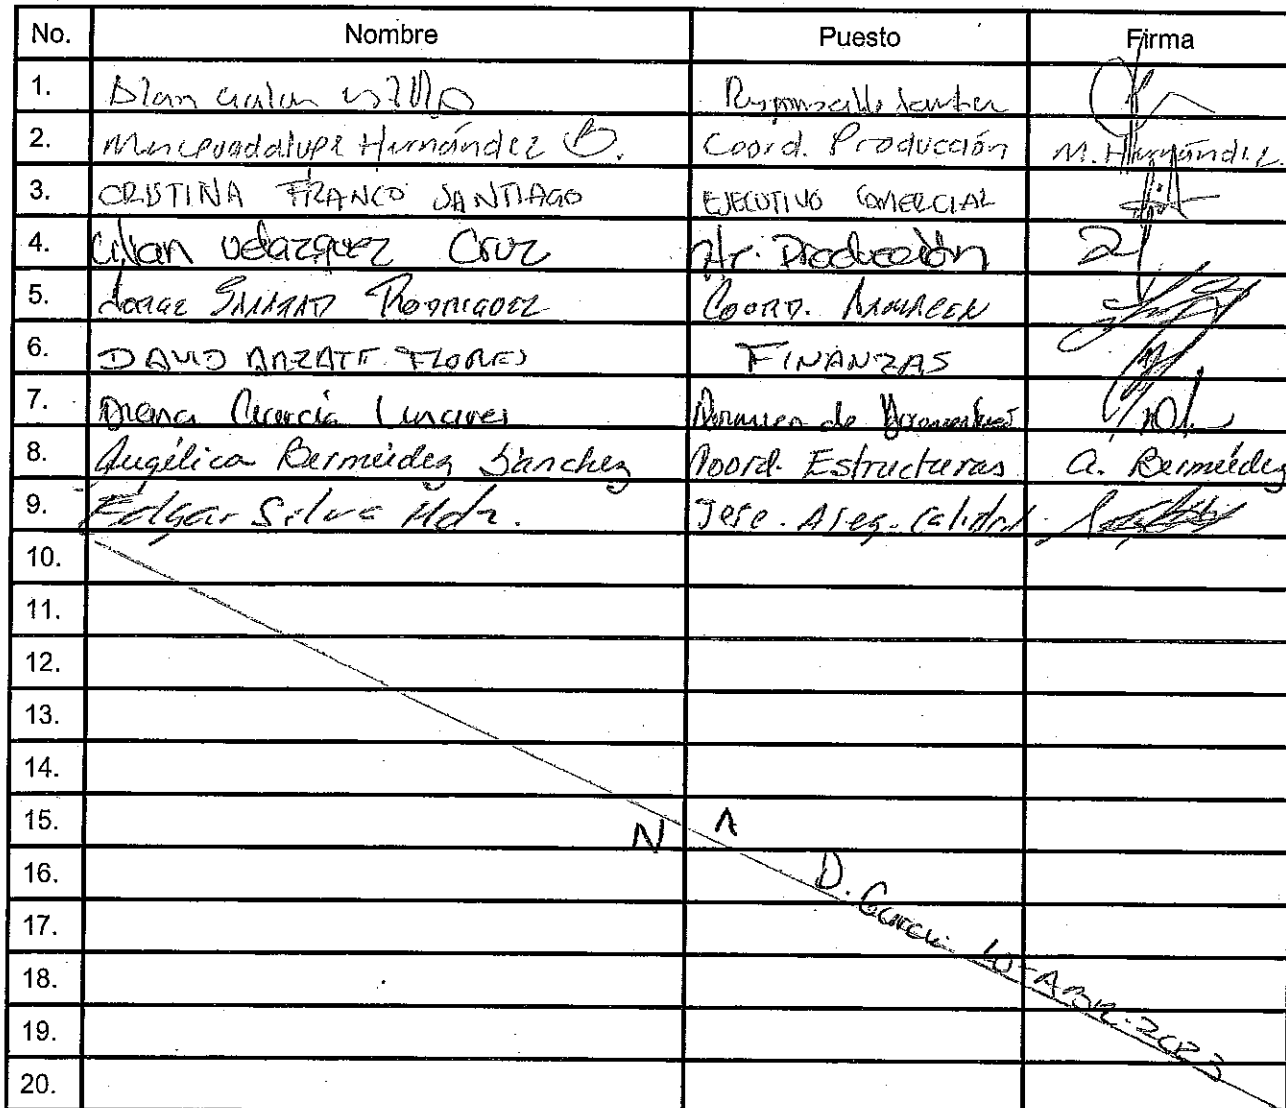 No. Nombre Puesto Firma
1. Responsable
2. Ma. Guadalupe Hernández B. Coord. Producción M. Hernández.
3. CRISTINA FRANCO SANTIAGO EJECUTIVO COMERCIAL
4. Velazquez Cruz Producción
5. Jorge Rodriguez Coord. Almacen
6. DAVID ARZATE FLORES FINANZAS
7. García Linares de
8. Angélica Bermúdez Sánchez Coord. Estructuras A. Bermúdez
9. Edgar Silva Hdz. Jefe. Aseg. Calidad
10.
11.
12.
13.
14.
15. N A
16. D. García 10-ABR-2023
17.
18.
19.
20.